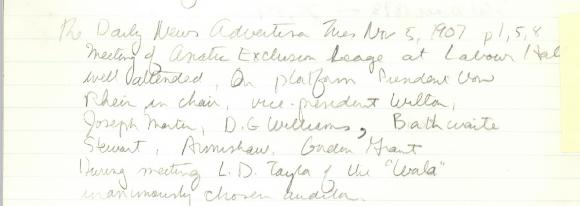 The Daily News Advertiser Tues Nov 5, 1907 p1,5,8
Meeting of Asiatic Exclusion League at Labour Hall
well attended, On platform President Von
Rhein in chair, vice-president Wilton,
Joseph Martin, D.G Williams, Bathwaite
Stewart, Armishaw. Gordon Grant
During meeting L.D. Taylor of the "Wala"
unanimously chosen auditor.